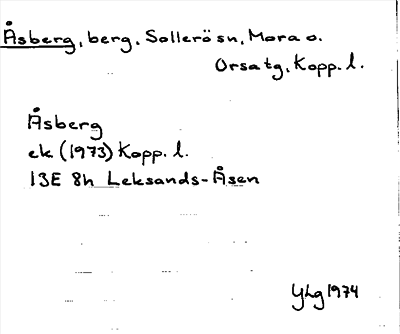 Åsberg, berg, Sollerö sn, Mora o.
Orsa tg, Kopp. l.
Åsberg
ek (1973) Kopp. l.
13E 8h Leksands-Åsen
YLg 1974